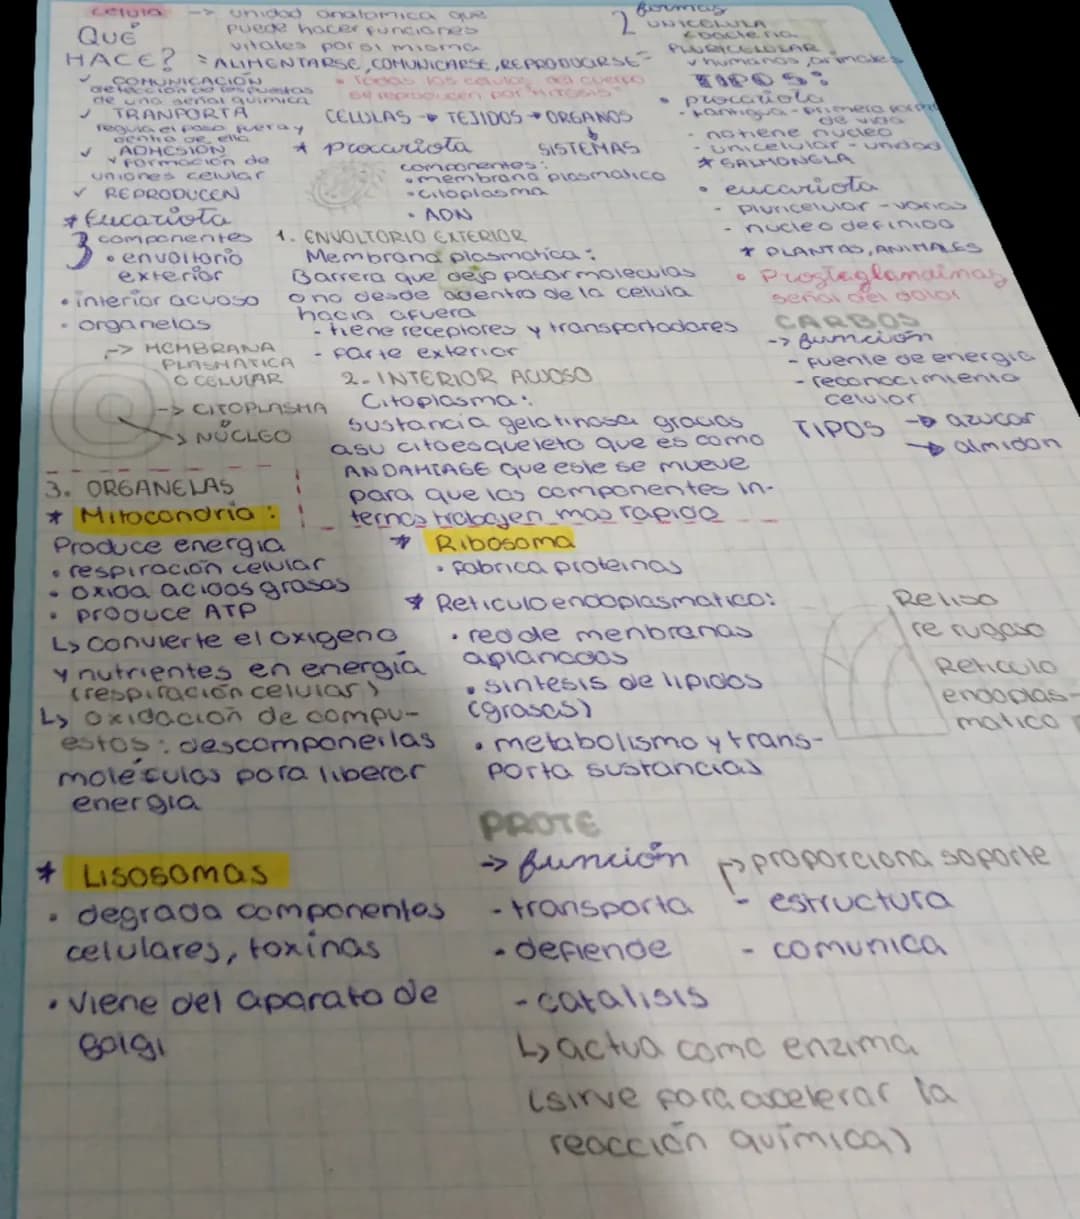 celula -> unidad anatomica que
puede hacer funciones
vitales por si misma
QUE
HACE? = ALIMENTARSE, COMUNICARSE, REPRODUCIRSE
✓ COMUNICACIÓN
detección de respuestas
de una señal quimica
✓ TRANPORTA
regula el paso fuera y
dentro de ella
✓ ADHESION
✓ formación de
uniones celular
✓ REPRODUCEN
• Todas las celulas del cuerpo
se reproducen por "MITOSIS"
CELULAS -> TEJIDOS -> ORGANOS
SISTEMAS
* Procariota
componentes:
• membrana plasmatica
• citoplasma
• ADN
2 formas
UNICELULA
bacteria
PLURICELULAR
humanos, animales
TIPOS:
• procariota
- antigua - primera forma
de vida
- no tiene nucleo
- unicelular - unidad
* SALMONELA
• eucariota
- pluricelular - varias
- nucleo definido
* PLANTAS, ANIMALES
• Prostaglandinas
señal del dolor
* Eucariota
3 componentes
• envoltorio
exterior
• interior acuoso
• organelas
-> MEMBRANA
PLASMATICA
O CELULAR
-> CITOPLASMA
-> NÚCLEO
1. ENVOLTORIO EXTERIOR
Membrana plasmatica:
Barrera que deja pasar moleculas
o no desde adentro de la celula
hacia afuera
- tiene receptores y transportadores
- parte exterior
2. INTERIOR ACUOSO
Citoplasma:
Sustancia gelatinosa gracias
a su citoesqueleto que es como
ANDAMIAGE que este se mueve
para que los componentes in-
ternos trabajen mas rapido
CARBOS
-> función
- fuente de energia
- reconocimiento
celular
TIPOS -> azucar
-> almidon
3. ORGANELAS
* Mitocondria:
Produce energia
• respiración celular
• oxida acidos grasos
• produce ATP
↳ convierte el oxigeno
y nutrientes en energía
(respiración celular)
↳ oxidación de compu-
estos: descomponer las
moléculas para liberar
energia
* Ribosoma
• fabrica proteinas
* Reticulo endoplasmatico:
• red de menbranas
aplanadas
• sintesis de lipidos
(grasas)
• metabolismo y trans-
porta sustancias
Re liso
re rugoso
Reticulo
endoplas-
matico
* Lisosomas
• degrada componentes
celulares, toxinas
• viene del aparato de
Golgi
PROTE
-> función
- transporta
- defiende
- catalisis
↳ actua como enzima
(sirve para acelerar la
reacción química)
-> proporciona soporte
- estructura
- comunica